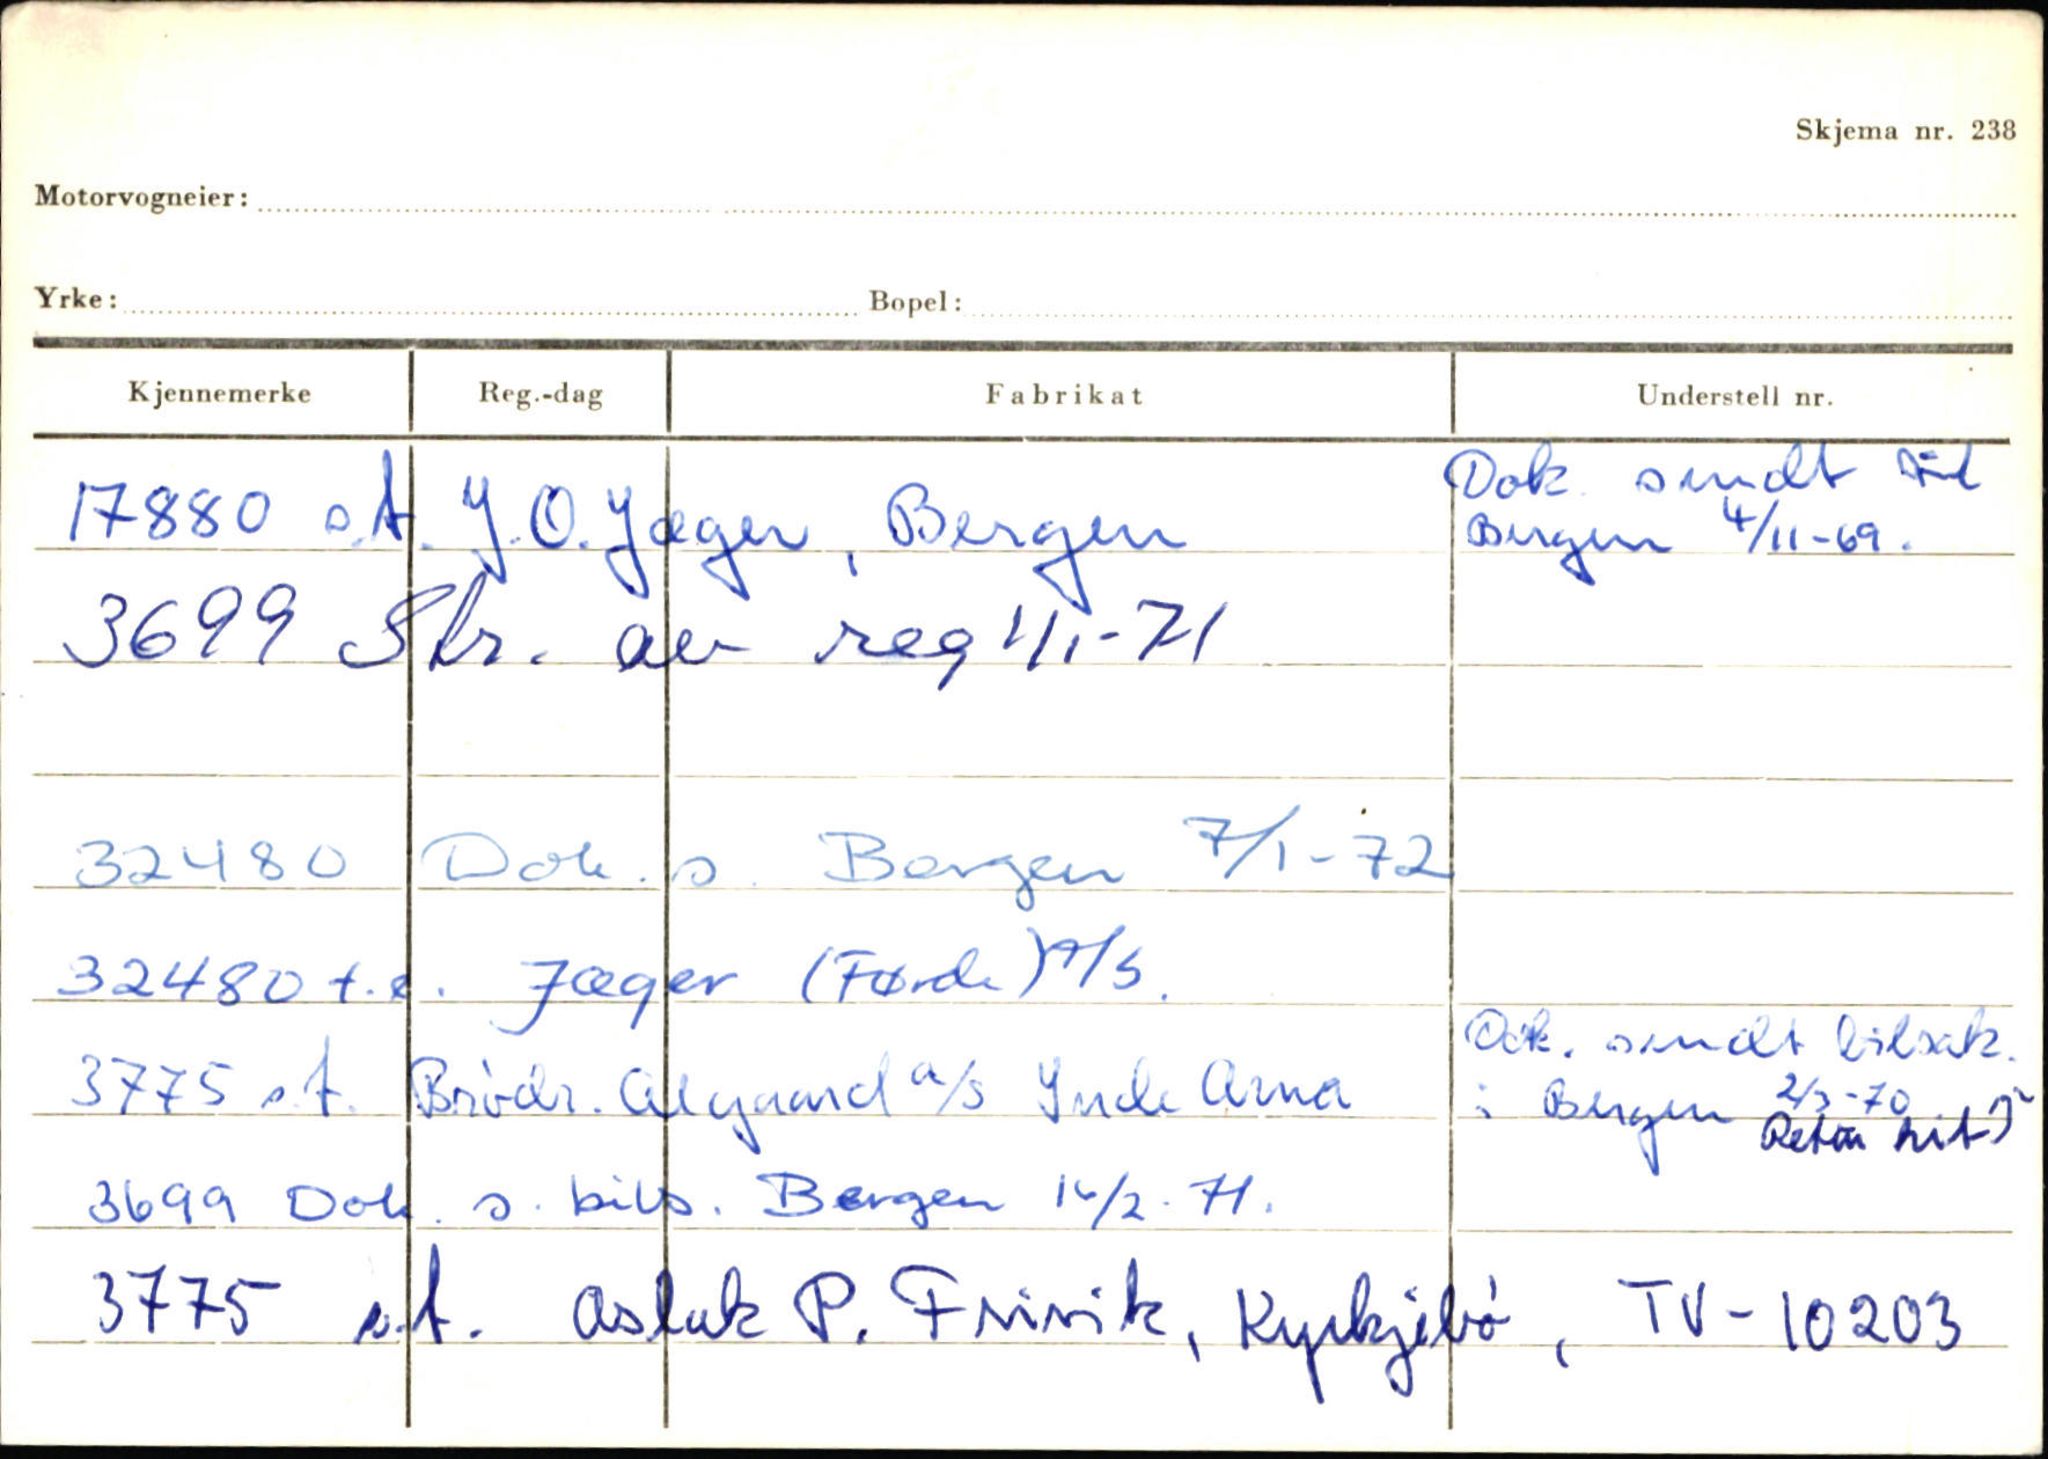 Skjema nr. 238
Motorvogneier:
Yrke: Bopel:
Kjennemerke Reg.-dag Fabrikat Understell nr.
17880 s.t. J. O. Jæger, Bergen Dok. sendt til
Bergen 4/11-69.
3699 Str. av reg 1/1-71
32480 Dok. s. Bergen 7/1-72
32480 t.e. Jæger (Førde) A/S.
3775 s.t. Brödr. Algaard a/s Indre Arna Dok. sendt bilsak.
i Bergen 2/3-70.
Retur hit
3699 Dok. s. bils. Bergen 16/2-71.
3775 s.t. Aslak P. Frivik, Kyrkjebö, TV-10203